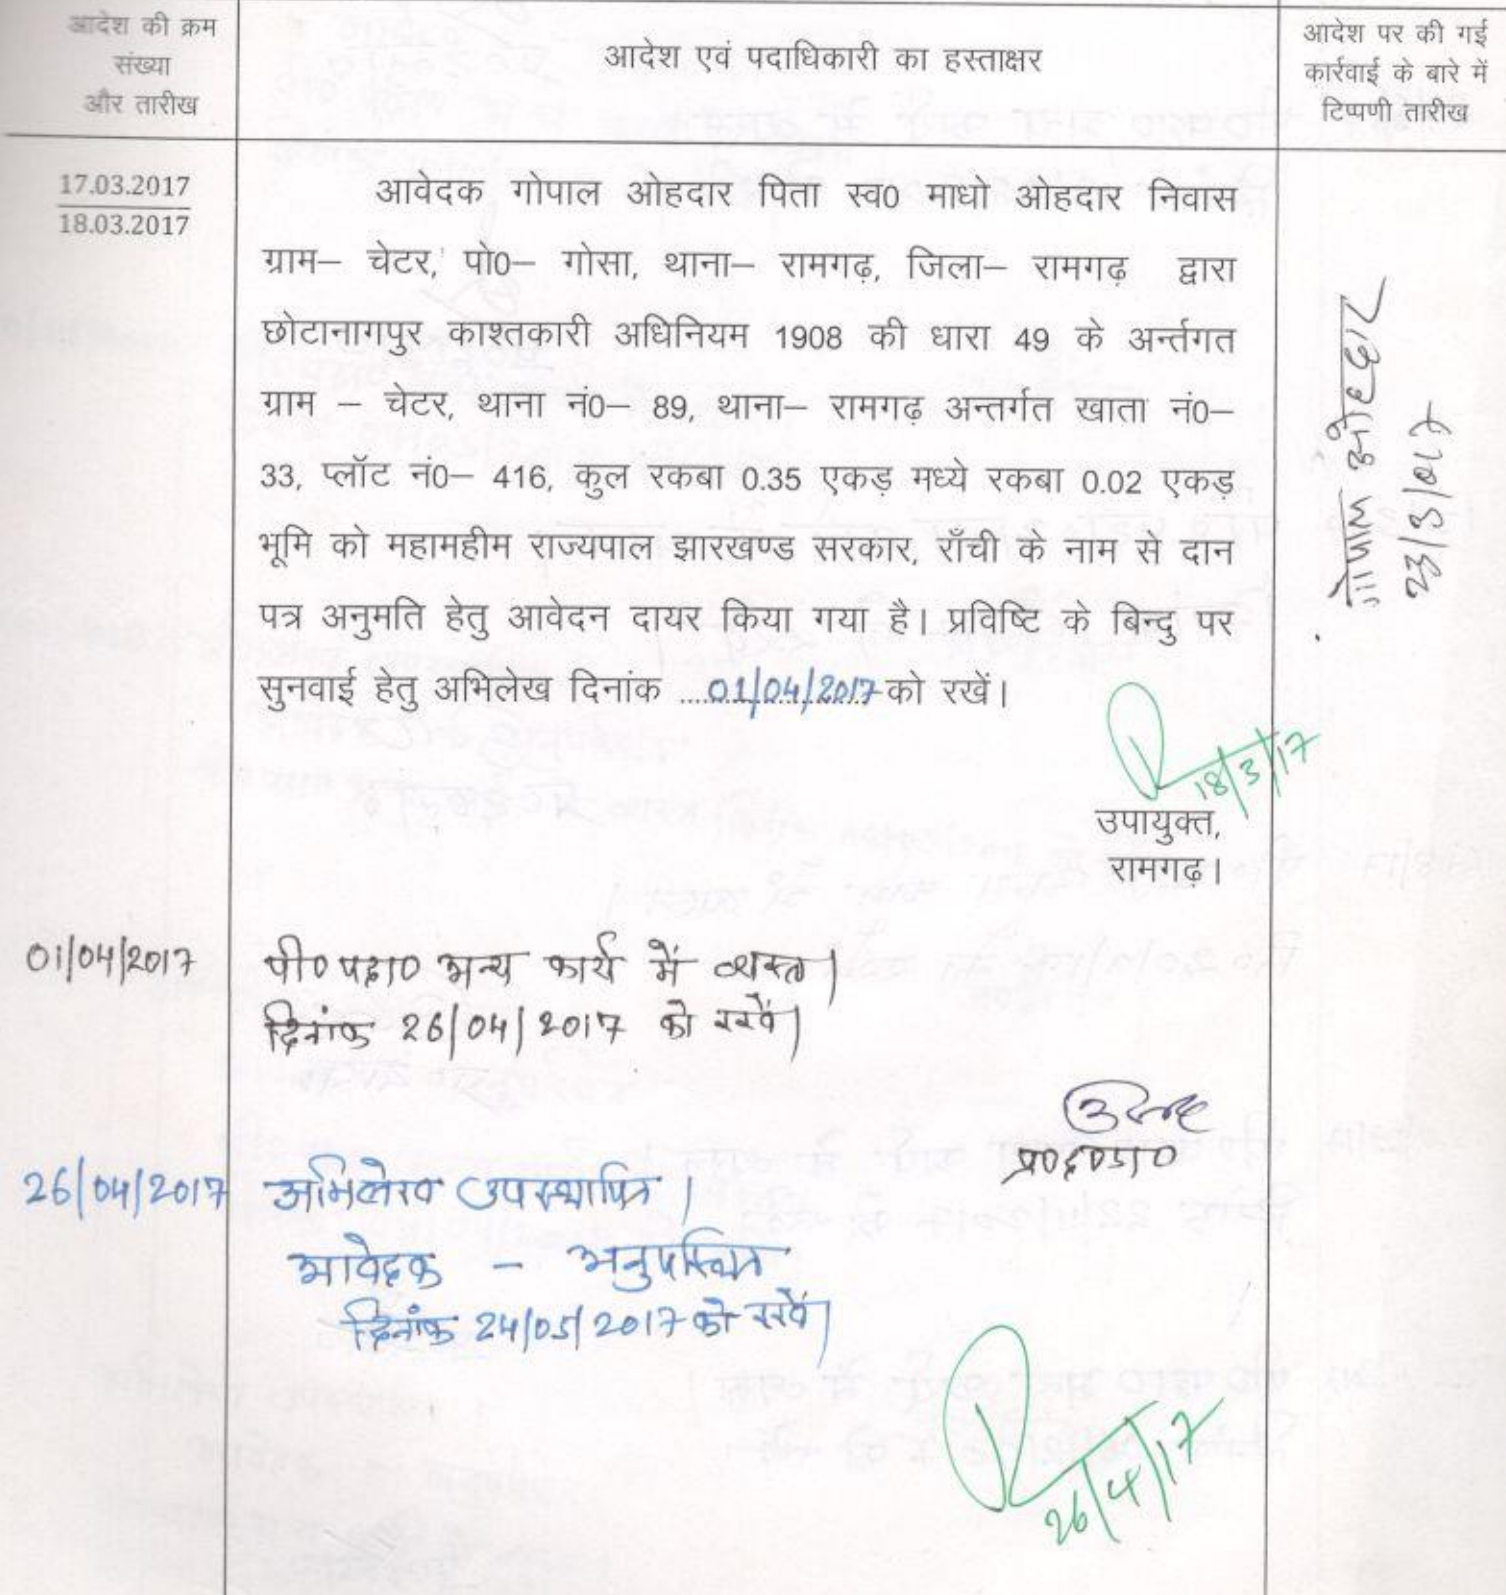 आदेश की क्रम
संख्या
और तारीख
आदेश एवं पदाधिकारी का हस्ताक्षर
आदेश पर की गई
कार्रवाई के बारे में
टिप्पणी तारीख
17.03.2017
18.03.2017
आवेदक गोपाल ओहदार पिता स्व0 माधो ओहदार निवास
ग्राम– चेटर, पो0– गोसा, थाना– रामगढ़, जिला– रामगढ़ द्वारा
छोटानागपुर काश्तकारी अधिनियम 1908 की धारा 49 के अर्न्तगत
ग्राम – चेटर, थाना नं0– 89, थाना– रामगढ़ अन्तर्गत खाता नं0–
33, प्लॉट नं0– 416, कुल रकबा 0.35 एकड़ मध्ये रकबा 0.02 एकड़
भूमि को महामहीम राज्यपाल झारखण्ड सरकार, राँची के नाम से दान
पत्र अनुमति हेतु आवेदन दायर किया गया है। प्रविष्टि के बिन्दु पर
सुनवाई हेतु अभिलेख दिनांक ....01/04/2017 को रखें।
गोपाल ओहदार
23/3/017
18/3/17
उपायुक्त,
रामगढ़।
01/04/2017
पी0 पदा0 अन्य कार्य में व्यस्त।
दिनांक 26/04/2017 को रखें।
26/04/2017
अभिलेख उपस्थापित।
आवेदक – अनुपस्थित
दिनांक 24/05/2017 को रखें।
26/4/17